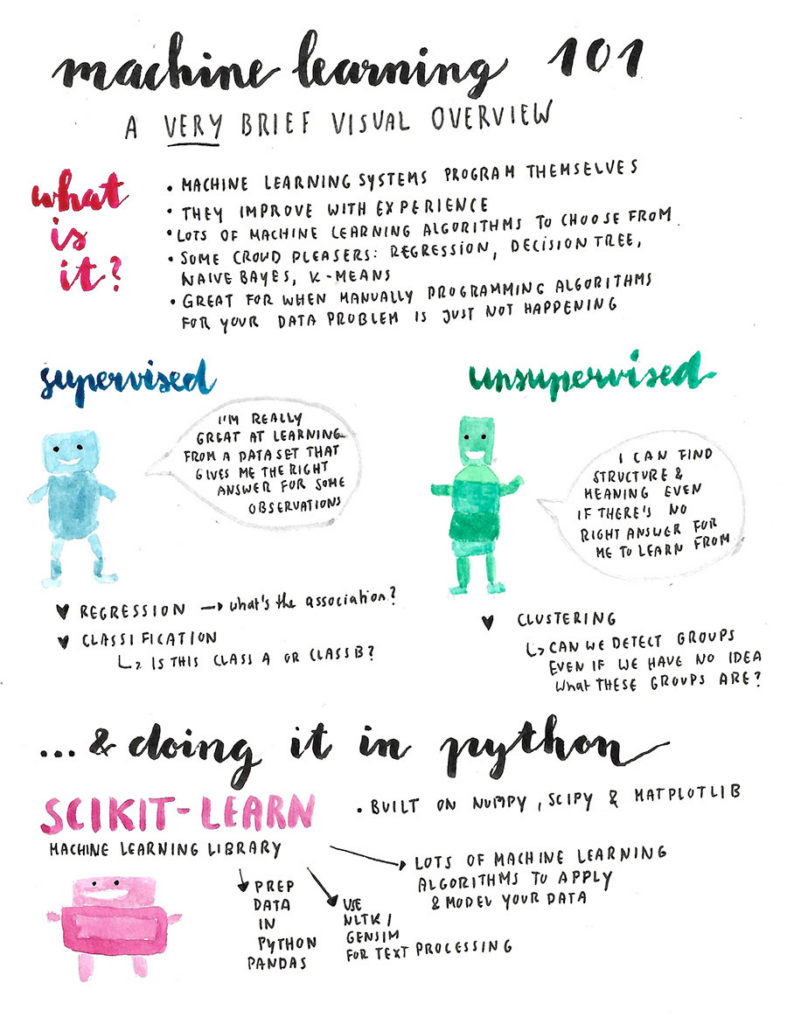 machine learning 101
A VERY BRIEF VISUAL OVERVIEW
what
is
it?
• MACHINE LEARNING SYSTEMS PROGRAM THEMSELVES
• THEY IMPROVE WITH EXPERIENCE
• LOTS OF MACHINE LEARNING ALGORITHMS TO CHOOSE FROM
• SOME CROUD PLEASERS: REGRESSION, DECISION TREE,
NAIVE BAYES, K-MEANS
• GREAT FOR WHEN MANUALLY PROGRAMMING ALGORITHMS
FOR YOUR DATA PROBLEM IS JUST NOT HAPPENING
supervised
I'M REALLY
GREAT AT LEARNING
FROM A DATASET THAT
GIVES ME THE RIGHT
ANSWER FOR SOME
OBSERVATIONS
♥ REGRESSION → what's the association?
♥ CLASSIFICATION
↳ IS THIS CLASS A OR CLASS B?
unsupervised
I CAN FIND
STRUCTURE &
MEANING EVEN
IF THERE'S NO
RIGHT ANSWER FOR
ME TO LEARN FROM
♥ CLUSTERING
↳ CAN WE DETECT GROUPS
EVEN IF WE HAVE NO IDEA
What THESE GROUPS ARE?
...& doing it in python
SCIKIT-LEARN
MACHINE LEARNING LIBRARY
• BUILT ON NUMPY, SCIPY & MATPLOTLIB
LOTS OF MACHINE LEARNING
ALGORITHMS TO APPLY
& MODEL YOUR DATA
PREP
DATA
IN
PYTHON
PANDAS
USE
NLTK /
GENSIM
FOR TEXT PROCESSING